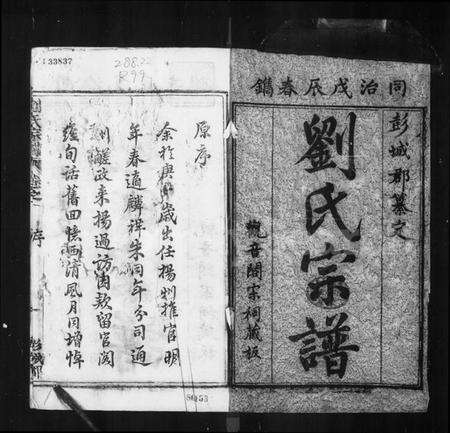 同治戊辰春鐫
彭城郡纂文
劉氏宗譜
觀音閣宗祠藏板
原序
余於庚歲出任揚州推官明
年春適麟祥朱同年分司通
州鹺政來揚過訪因款留官閣
句話舊回憶清風月同增悼
序
彭城郡
33837
208.2
R99